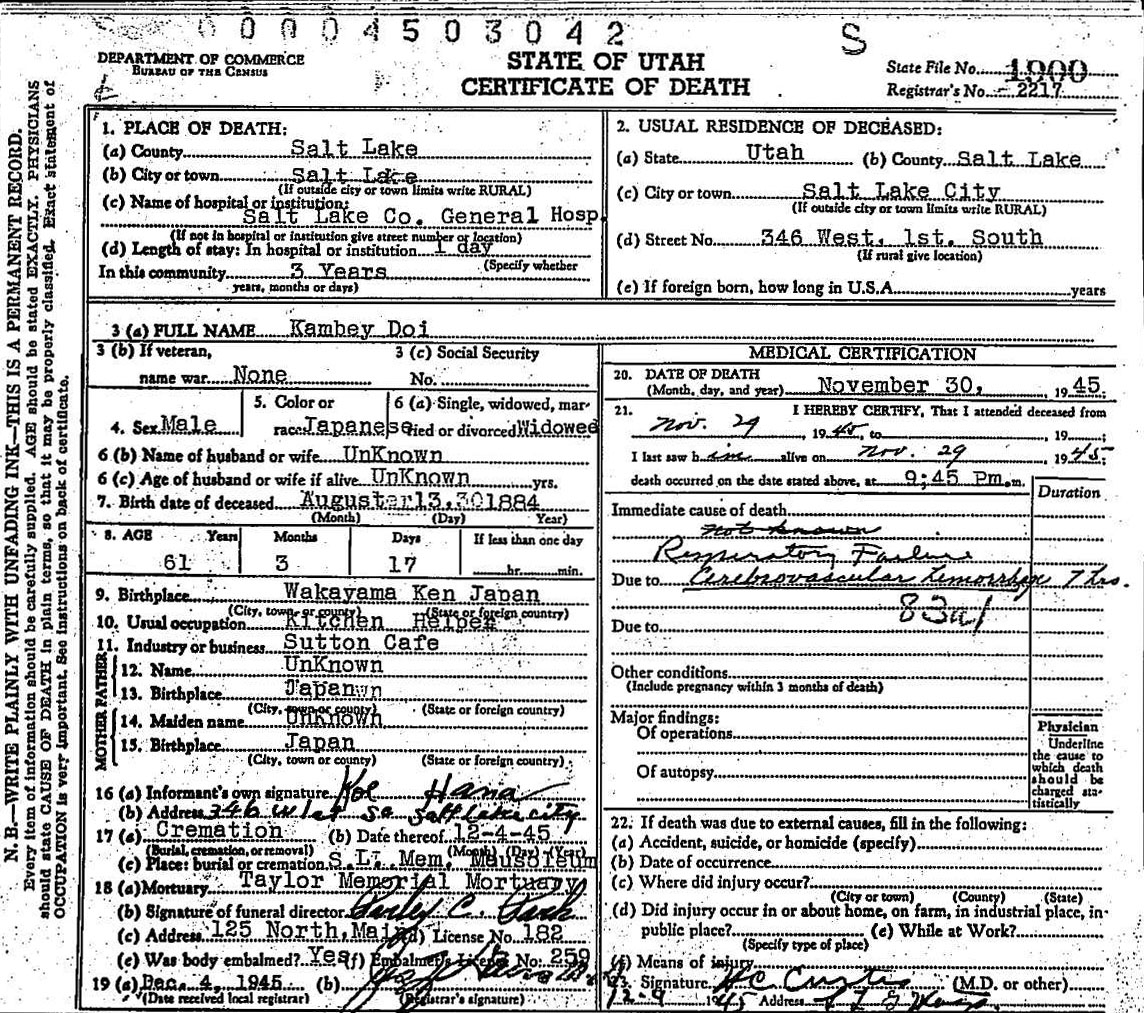 0 0 0 0 4 5 0 3 0 4 2 S
DEPARTMENT OF COMMERCE
BUREAU OF THE CENSUS
STATE OF UTAH
CERTIFICATE OF DEATH
State File No. 1900
Registrar's No. 2217
N. B.—WRITE PLAINLY WITH UNFADING INK—THIS IS A PERMANENT RECORD.
Every item of information should be carefully supplied. AGE should be stated EXACTLY. PHYSICIANS
should state CAUSE OF DEATH in plain terms, so that it may be properly classified. Exact statement of
OCCUPATION is very important. See instructions on back of certificate.
1. PLACE OF DEATH:
(a) County Salt Lake
(b) City or town Salt Lake
(If outside city or town limits write RURAL)
(c) Name of hospital or institution:
Salt Lake Co. General Hosp.
(If not in hospital or institution give street number or location)
(d) Length of stay: In hospital or institution 1 day
(Specify whether
In this community 3 Years
years, months or days)
2. USUAL RESIDENCE OF DECEASED:
(a) State Utah (b) County Salt Lake
(c) City or town Salt Lake City
(If outside city or town limits write RURAL)
(d) Street No. 346 West, 1st. South
(If rural give location)
(e) If foreign born, how long in U.S.A. years
3 (a) FULL NAME Kambey Doi
3 (b) If veteran,
name war None
3 (c) Social Security
No.
4. Sex Male
5. Color or
race Japanese
6 (a) Single, widowed, mar-
ried or divorced Widowed
6 (b) Name of husband or wife UnKnown
6 (c) Age of husband or wife if alive UnKnown yrs.
7. Birth date of deceased August 13, 1884
(Month) (Day) Year)
8. AGE Years Months Days If less than one day
61 3 17 hr. min.
9. Birthplace Wakayama Ken Japan
(City, town or county) (State or foreign country)
10. Usual occupation Kitchen Helper
11. Industry or business Sutton Cafe
FATHER
12. Name UnKnown
13. Birthplace Japan
(City, town or county) (State or foreign country)
MOTHER
14. Maiden name UnKnown
15. Birthplace Japan
(City, town or county) (State or foreign country)
16 (a) Informant's own signature Koe Hana
(b) Address 346 W 1st So Salt Lake City
17 (a) Cremation (b) Date thereof 12-4-45
(Burial, cremation, or removal) (Month) (Day) (Year)
(c) Place: burial or cremation S.L. Mem. Mausoleum
18 (a) Mortuary Taylor Memorial Mortuary
(b) Signature of funeral director C. Park
(c) Address 125 North, Main (d) License No. 182
(e) Was body embalmed? Yes (f) Embalmer's License No. 259
19 (a) Dec. 4, 1945 (b)
(Date received local registrar) (Registrar's signature)
MEDICAL CERTIFICATION
20. DATE OF DEATH
(Month, day, and year) November 30, 1945
21. I HEREBY CERTIFY, That I attended deceased from
Nov. 29, 1945, to , 19 ;
I last saw him alive on Nov. 29 1945
death occurred on the date stated above, at 9;45 Pm. m.
Duration
Immediate cause of death
not known
Respiratory Failure
Due to Cerebrovascular hemorrhage 7 hrs.
83a1
Due to
Other conditions
(Include pregnancy within 3 months of death)
Major findings:
Of operations
Of autopsy
Physician
Underline
the cause to
which death
should be
charged sta-
tistically
22. If death was due to external causes, fill in the following:
(a) Accident, suicide, or homicide (specify)
(b) Date of occurrence
(c) Where did injury occur?
(City or town) (County) (State)
(d) Did injury occur in or about home, on farm, in industrial place, in
public place? (e) While at Work?
(Specify type of place)
(f) Means of injury
23. Signature Curtis (M.D. or other)
12-9 1945 Address